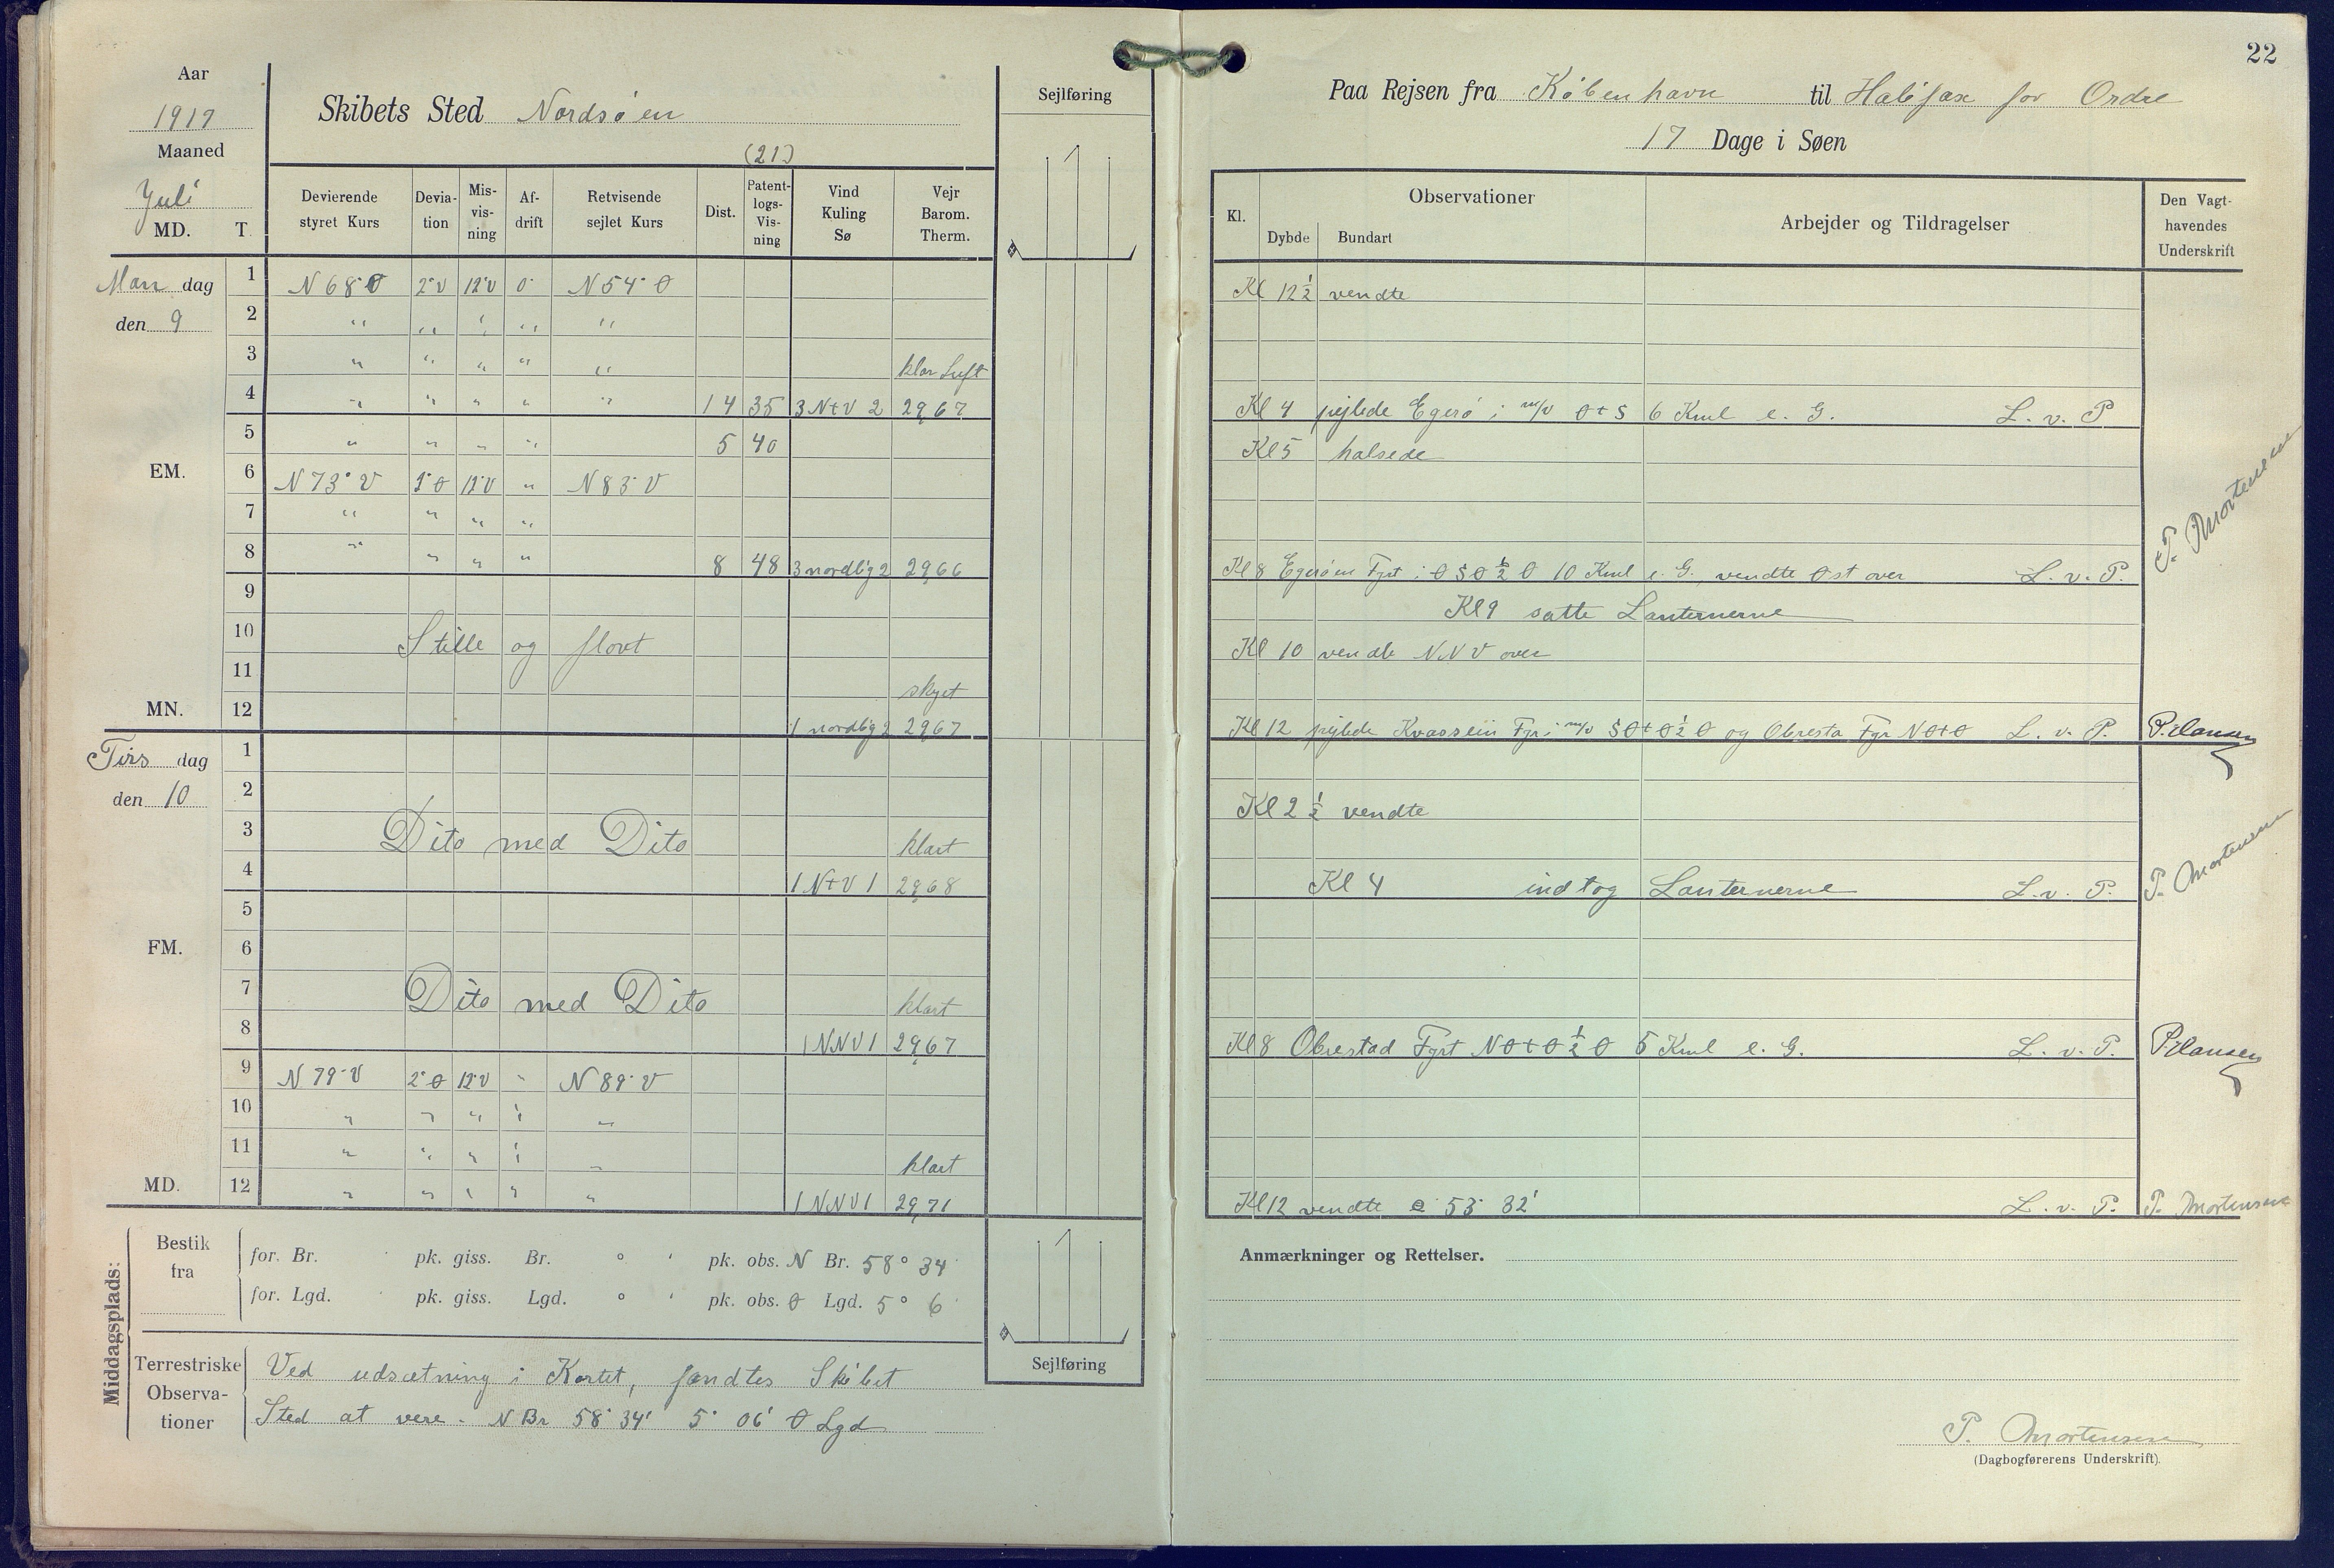 22
Aar
1917
Maaned
Juli
MD. T.
Skibets Sted Nordsøen
(21)
Sejlføring
Paa Rejsen fra København til Halifax for Ordre
17 Dage i Søen
Devierende styret Kurs
Devia-tion
Mis-vis-ning
Af-drift
Retvisende sejlet Kurs
Dist.
Patent-logs-Vis-ning
Vind Kuling Sø
Vejr Barom. Therm.
Kl.
Observationer
Dybde Bundart
Arbejder og Tildragelser
Den Vagt-havendes Underskrift
Man dag 1 N 68° Ø 2°V 12°V 0° N 54° Ø Kl 12½ vendte
den 9 2 " " " " "
3 " " " " " klar Luft
4 " " " " " 14 35 3 N t V 2 29,67 Kl 4 pejlede Egerø i m/v Ø t S 6 Kml e. G. L. v. P
5 " " " " 5 40 Kl 5 halsede
EM. 6 N 73° V 2°Ø 12°V " N 83° V
7 " " " "
8 " " " " 8 48 3 nordlig 2 29,66 Kl 8 Egerøen Fyrt i Ø S Ø ½ Ø 10 Kml e. G. vendte Øst over L. v. P.
P. Mortensen
9 Kl 9 satte Lanternerne
10 Stille og flovt Kl 10 vendte NNV over
11 skyet
MN. 12 1 nordlig 2 29,67 Kl 12 pejlede Kvassein Fyr i m/v S Ø t Ø ½ Ø og Obresta Fyr N Ø t Ø L. v. P. P. Hansen
Tirs dag 1
den 10 2 Kl 2½ vendte
3 Dito med Dito klart
4 1 N t V 1 29,68 Kl 4 indtog Lanternerne L. v. P. P. Mortensen
5
FM. 6
7 Dito med Dito klart
8 1 NNV 1 29,67 Kl 8 Obrestad Fyrt N Ø t Ø ½ Ø 5 Kml e. G. L. v. P. P. Hansen
9 N 79° V 2°Ø 12°V " N 89° V
10 " " " " "
11 " " " " " klart
MD. 12 " " " " " 1 NNV 1 29,71 Kl 12 vendte 53° 32' L. v. P. P. Mortensen
Middagsplads:
Bestik fra
for. Br. ' pk. giss. Br. ° ' pk. obs. N Br. 58° 34'
for. Lgd. ' pk. giss. Lgd. ° ' pk. obs. Ø Lgd. 5° 6'
Terrestriske Observa-tioner
Ved udsætning i Kortet, fandtes Skibet
Sted at vere. N Br 58° 34' 5° 06' Ø Lgd
Sejlføring
Anmærkninger og Rettelser.
P. Mortensen
(Dagbogførerens Underskrift).